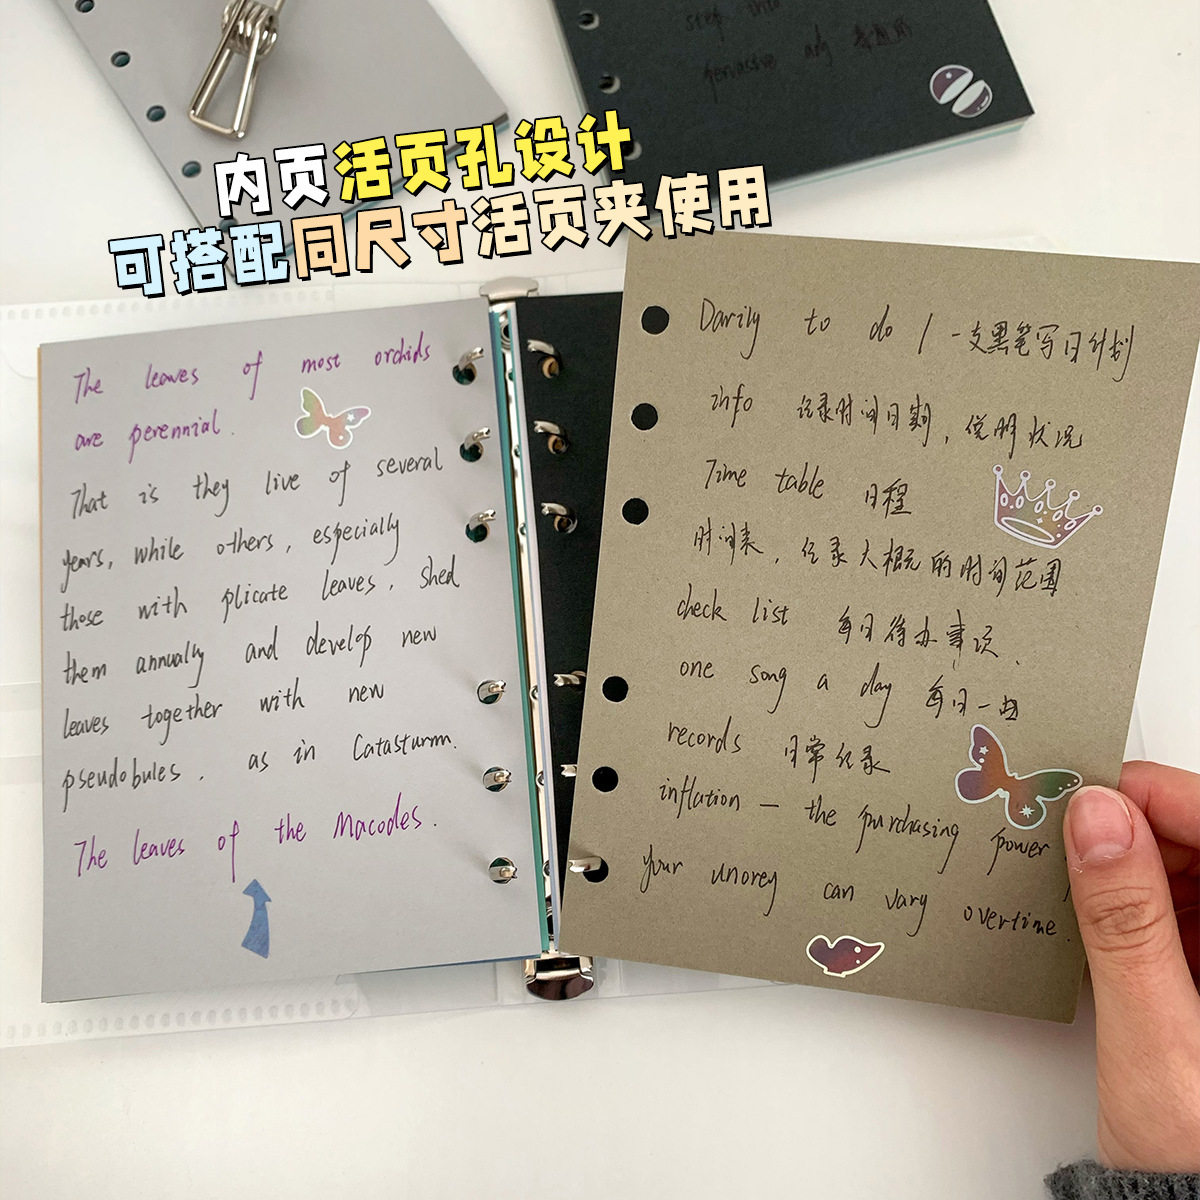 step into
pervasive adj 普遍的
内页活页孔设计
可搭配同尺寸活页夹使用
The leaves of most orchids
are perennial.
That is they live of several
years, while others, especially
those with plicate leaves, shed
them annually and develop new
leaves together with new
pseudobules, as in Catasturm.
The leaves of the Macodes.
Darily to do / 一支黑笔写日计划
info 记录时间日期，说明状况
Time table 日程
时间表，记录大概的时间范围
check list 每日待办事项、
one song a day 每日一曲
records 日常记录
inflation — the purchasing power
your unorey can vary overtime.